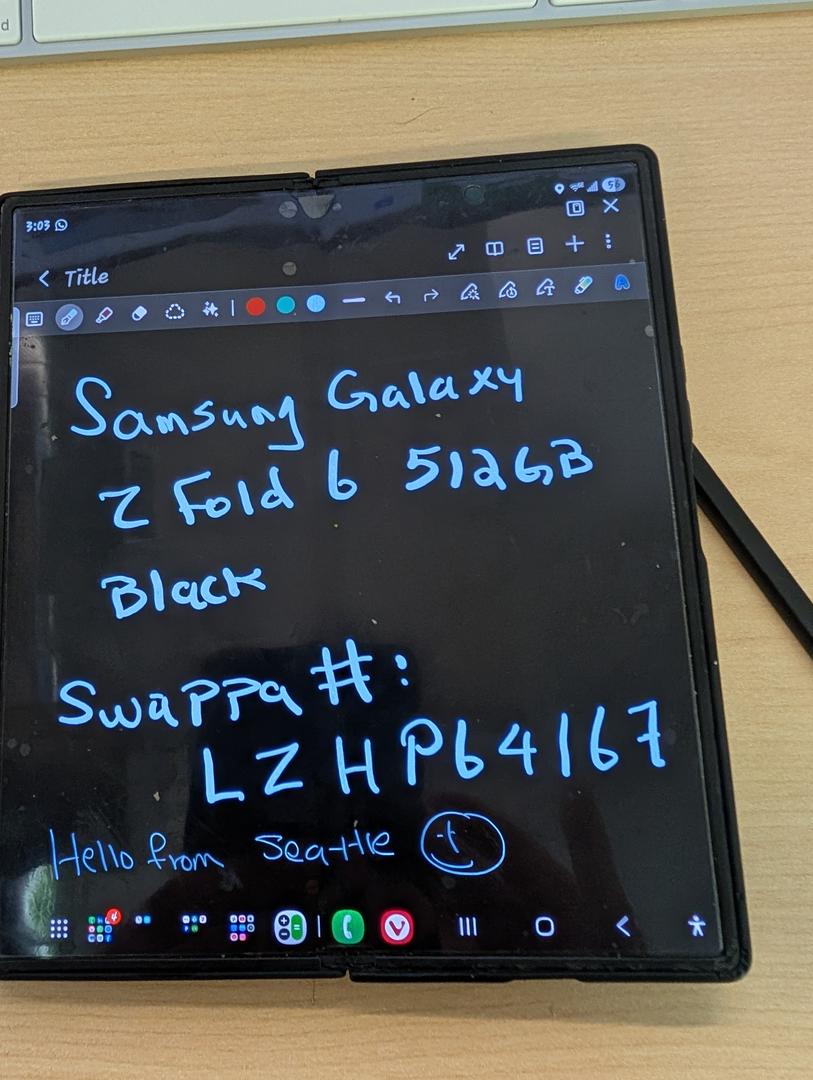 d
3:03
56
Title
Samsung Galaxy
Z Fold 6 512GB
Black
Swappa #:
LZHP64167
Hello from Seattle
4